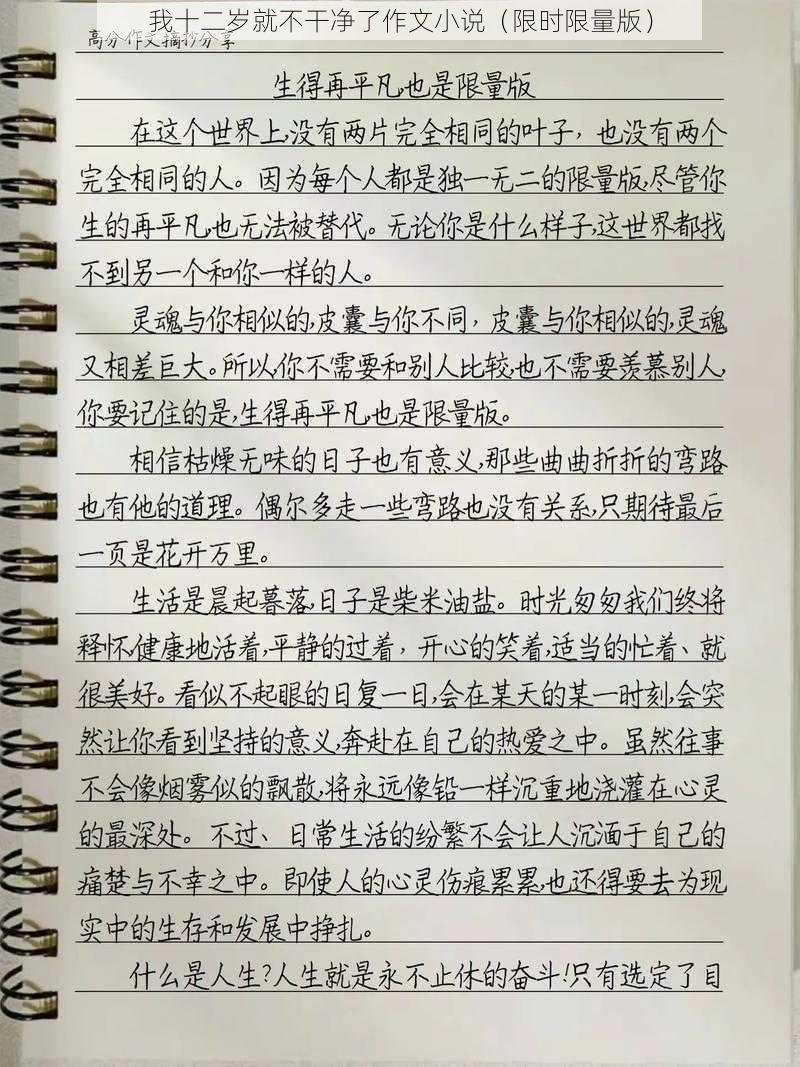 我十二岁就不干净了作文小说（限时限量版）
高分作文摘抄分享
生得再平凡,也是限量版
在这个世界上,没有两片完全相同的叶子，也没有两个
完全相同的人。因为每个人都是独一无二的限量版,尽管你
生的再平凡,也无法被替代。无论你是什么样子,这世界都找
不到另一个和你一样的人。
灵魂与你相似的,皮囊与你不同，皮囊与你相似的,灵魂
又相差巨大。所以,你不需要和别人比较,也不需要羡慕别人,
你要记住的是,生得再平凡,也是限量版。
相信枯燥无味的日子也有意义,那些曲曲折折的弯路
也有他的道理。偶尔多走一些弯路也没有关系,只期待最后
一页是花开万里。
生活是晨起暮落,日子是柴米油盐。时光匆匆我们终将
释怀,健康地活着,平静的过着，开心的笑着,适当的忙着、就
很美好。看似不起眼的日复一日,会在某天的某一时刻,会突
然让你看到坚持的意义,奔赴在自己的热爱之中。虽然往事
不会像烟雾似的飘散,将永远像铅一样沉重地浇灌在心灵
的最深处。不过、日常生活的纷繁不会让人沉湎于自己的
痛楚与不幸之中。即使人的心灵伤痕累累,也还得要去为现
实中的生存和发展中挣扎。
什么是人生?人生就是永不止休的奋斗!只有选定了目